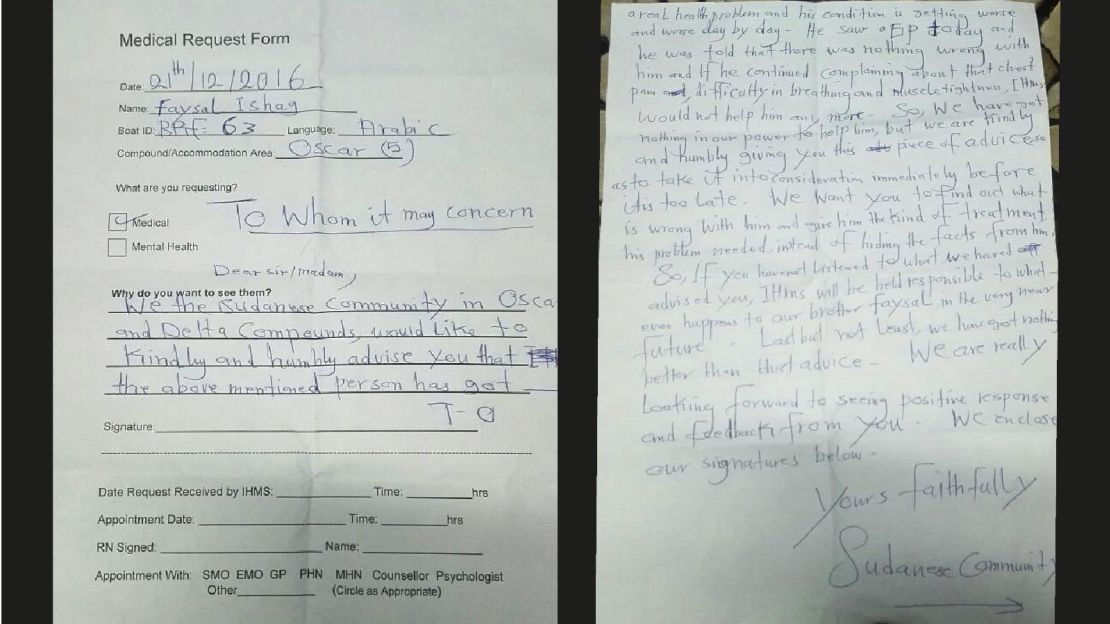 Medical Request Form
Date: 21th/12/2016
Name: Faysal Ishag
Boat ID: BRF= 63 Language: Arabic
Compound/Accommodation Area: Oscar (5)
What are you requesting?
Medical
To Whom it may concern
Mental Health
Dear sir/madam,
Why do you want to see them?
We the Sudanese Community in Osca
and Delta Compounds, would like to
Kindly and humbly advise you that
the above mentioned person has got
T-O
Signature:
Date Request Received by IHMS: Time: hrs
Appointment Date: Time: hrs
RN Signed: Name:
Appointment With: SMO EMO GP PHN MHN Counsellor Psychologist
Other (Circle as Appropriate)
a real health problem and his condition is getting worse
and worse day by day - He saw a GP today and
he was told that there was nothing wrong with
him and If he continued complaining about that chest
pain, difficulty in breathing and muscle tightness, IHms
would not help him any more. So, We have got
nothing in our power to help him, but we are kindly
and humbly giving you this piece of advice so
as to take it into consideration immediately before
it is too late. We Want you to find out what
is wrong with him and give him the kind of treatment
his problem needed, instead of hiding the facts from him.
So, If you have not listened to what we have
advised you, IHms will be held responsible to what-
ever happens to our brother faysal, in the very near
future. Last but not Least, we have got nothin
better than that advice - We are really
Looking forward to seeing positive response
and feedback from you. We enclose
our signatures below -
Yours faithfully
Sudanese Communit